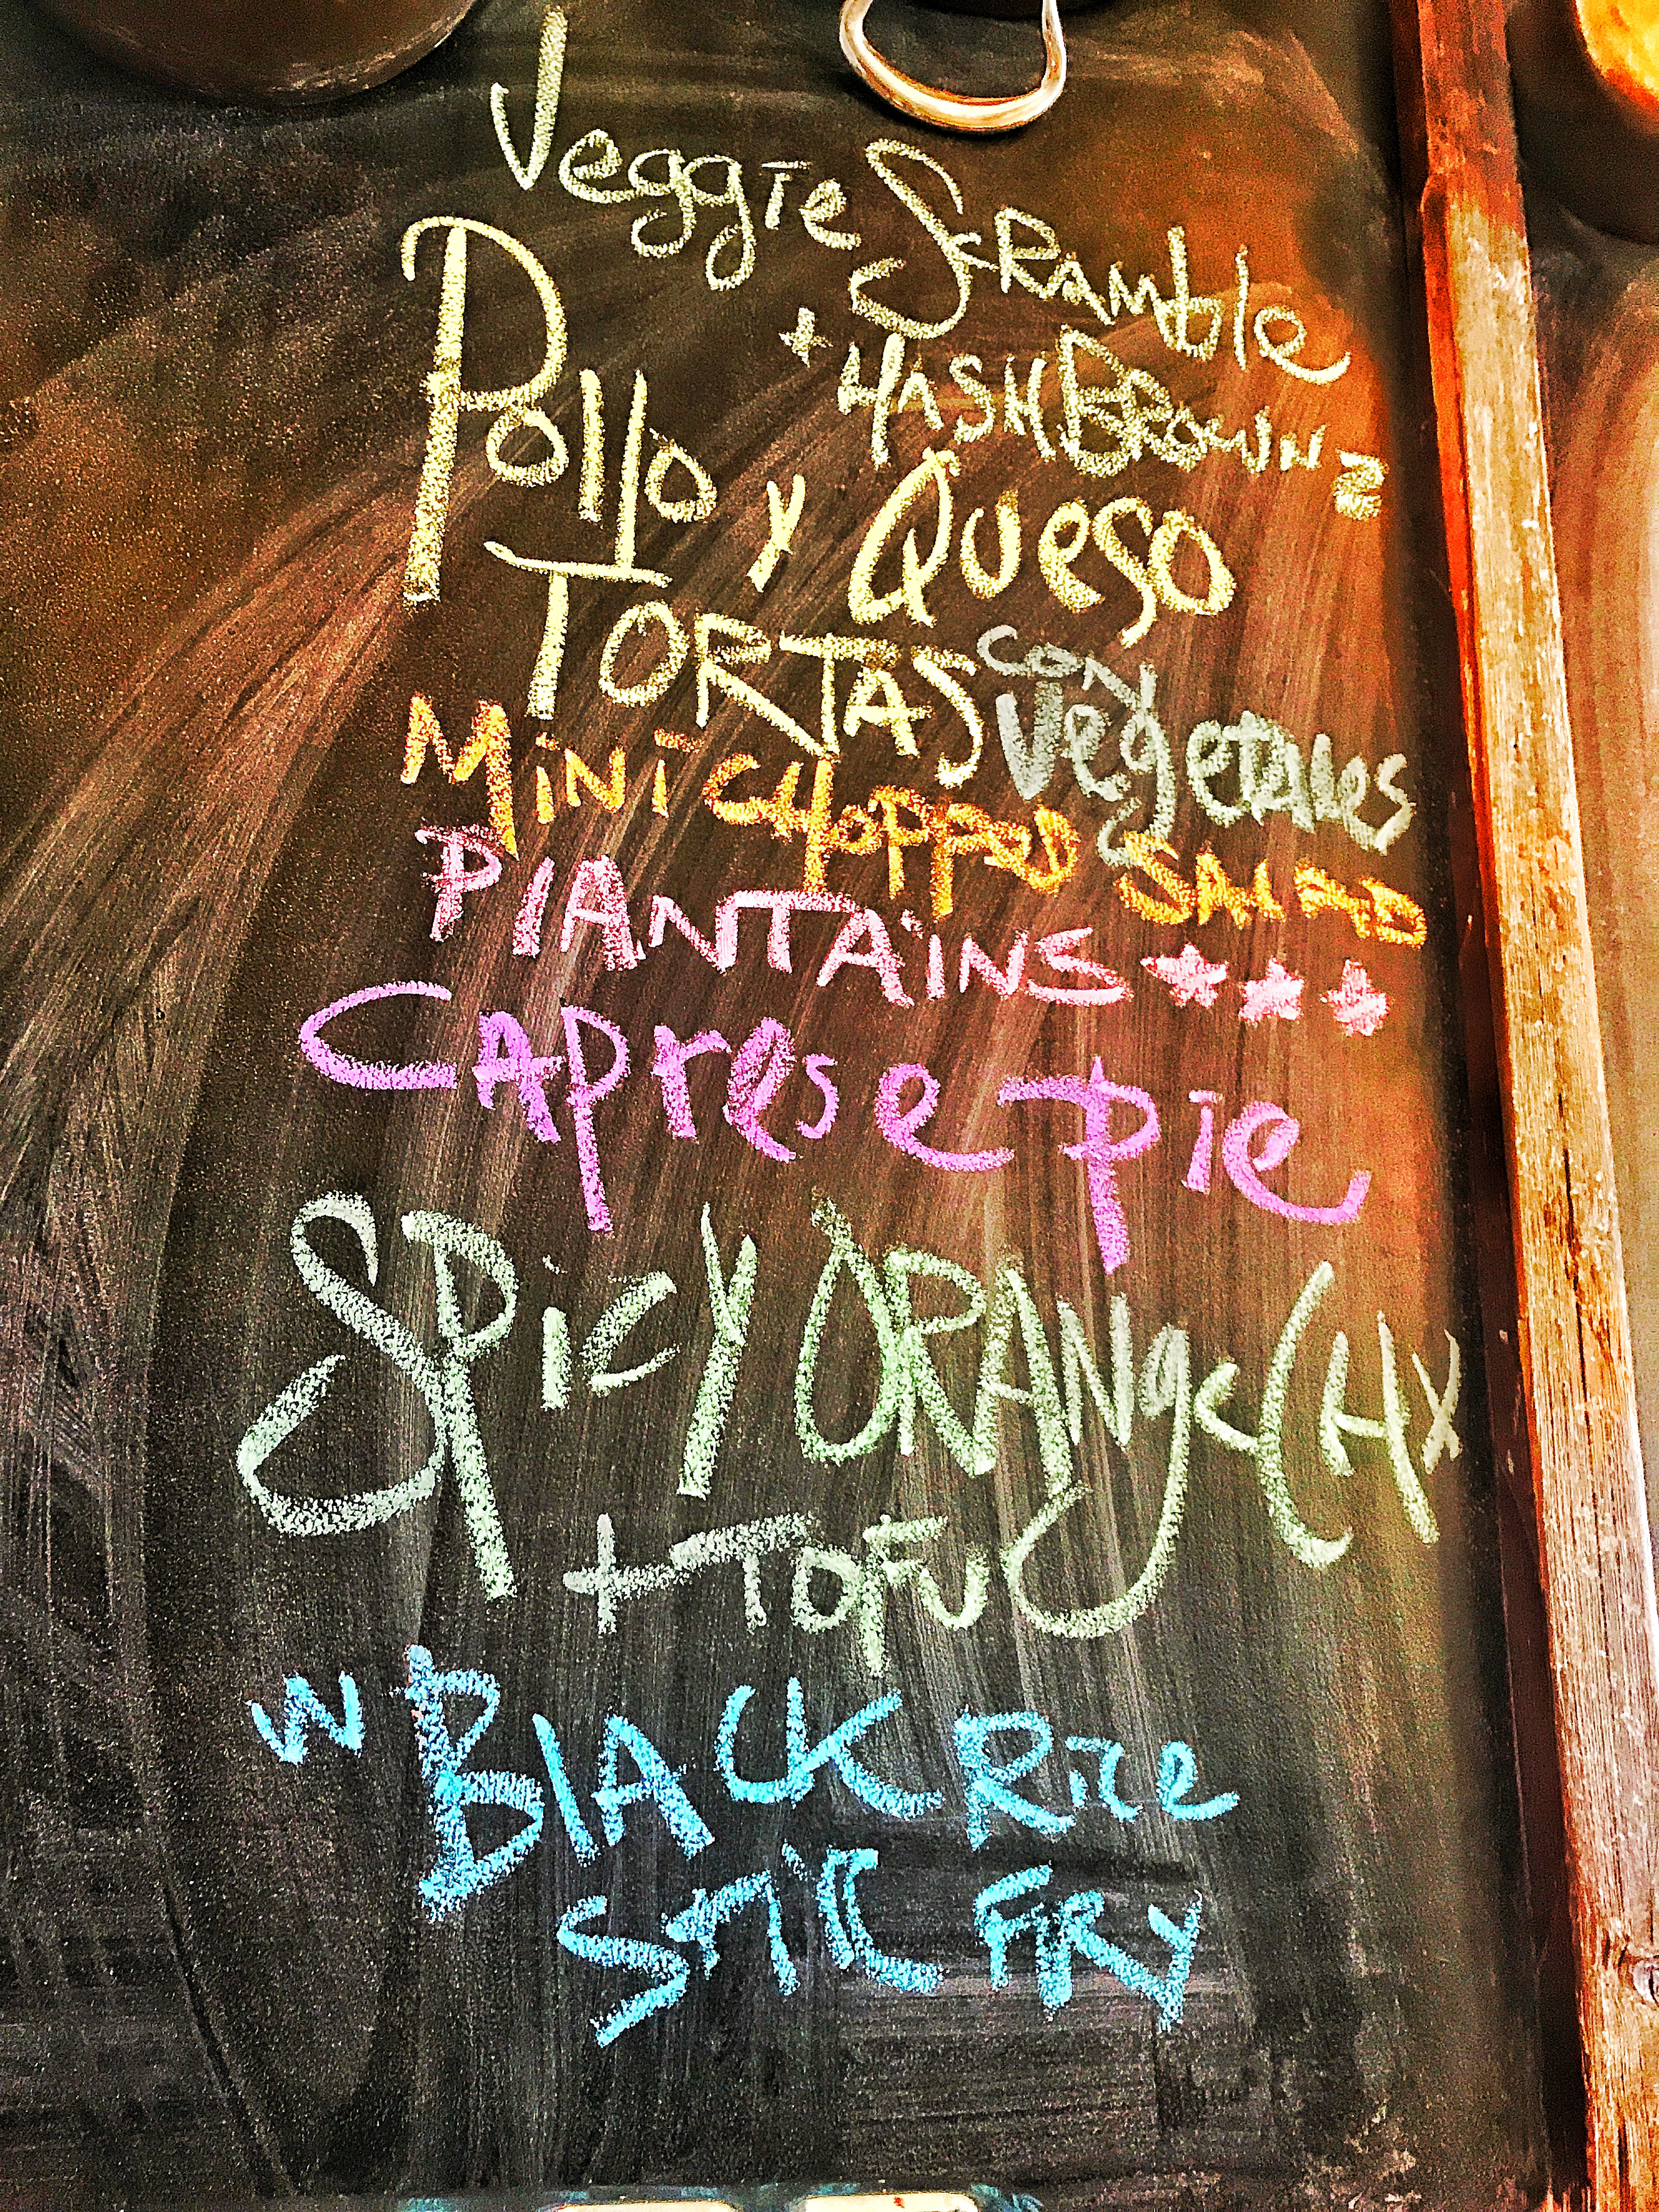 Veggie Scramble
+ HASH BROWNS
Pollo y Queso
TORTAS con Vegetales
MiNi CHOPPED SALAD
PlANTAiNS ★★★
CAprese pie
SPicY ORANge CHX
+ TOFU
W BlACK Rice
STIR FRY